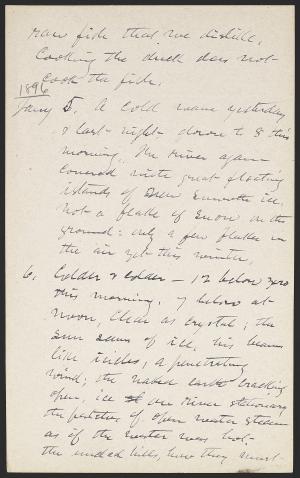 raw fish that we dislike.
Cooking the duck does not
cook the fish.
1896
Jany 5. A cold wave yesterday
& last night down to 8 this
morning. The river again
covered with great floating
islands of new smooth ice.
Not a flake of snow on the
ground: only a few flakes in
the air yet this winter.
6. Colder & colder - 12 below zero
this morning. 7 below at
noon, Clear as crystal; the
sun seems of ice, his beams
like icicles, a penetrating
wind; the naked earth cracking
open, ice on river stationary
the patches of open water steam
as if the water was hot
the wooded hills, how they must